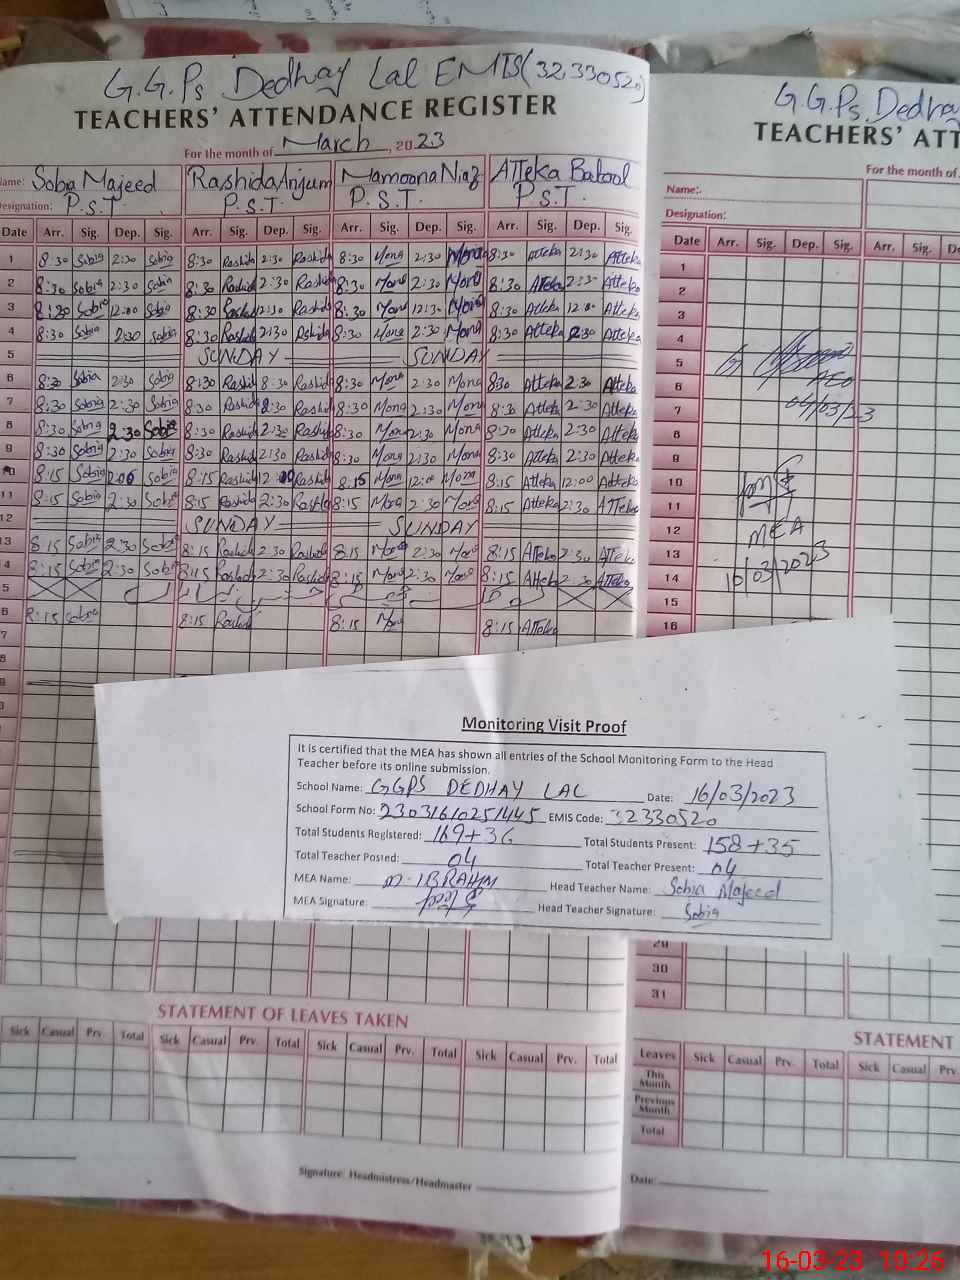 G.G.Ps Dedhay Lal EMIS(32330520)
TEACHERS' ATTENDANCE REGISTER
For the month of March, 2023
Name: Sobia Majeed Rashida Anjum Mamoona Niaz Atteka Batool
Designation: P.S.T. P.S.T. P.S.T. P.S.T.
Date Arr. Sig. Dep. Sig. Arr. Sig. Dep. Sig. Arr. Sig. Dep. Sig. Arr. Sig. Dep. Sig.
1 8:30 Sobia 2:30 Sobia 8:30 Rashida 2:30 Rashida 8:30 Mona 2:30 Mona 8:30 Atteka 2:30 Atteka
2 8:30 Sobia 2:30 Sobia 8:30 Rashida 2:30 Rashida 8:30 Mona 2:30 Mona 8:30 Atteka 2:30 Atteka
3 8:30 Sobia 12:00 Sobia 8:30 Rashida 2:30 Rashida 8:30 Mona 12:30 Mona 8:30 Atteka 12:00 Atteka
4 8:30 Sobia 2:30 Sobia 8:30 Rashida 2:30 Rshida 8:30 Mona 2:30 Mona 8:30 Atteka 2:30 Atteka
5 SUNDAY SUNDAY
6 8:30 Sobia 2:30 Sobia 8:30 Rashid 8:30 Rashid 8:30 Mona 2:30 Mona 8:30 Atteka 2:30 Atteka
7 8:30 Sobia 2:30 Sobia 8:30 Rashid 2:30 Rashid 8:30 Mona 2:30 Mona 8:30 Atteka 2:30 Atteka
8 8:30 Sobia 2:30 Sobia 8:30 Rashid 2:30 Rashid 8:30 Mona 2:30 Mona 8:30 Atteka 2:30 Atteka
9 8:30 Sobia 2:30 Sobia 8:30 Rashid 2:30 Rashid 8:30 Mona 2:30 Mona 8:30 Atteka 2:30 Atteka
10 8:15 Sobia 8:15 Rashid Rashid 8:15 Mona 12:00 Mona 8:15 Atteka 12:00 Atteka
11 8:15 Sobia 2:30 Sobia 8:15 Rashida 2:30 Rashida 8:15 Mona 2:30 Mona 8:15 Atteka 2:30 ATTeka
12 SUNDAY SUNDAY
13 8:15 Sobia 2:30 Sobia 8:15 Rashid 2:30 Rashid 8:15 Mona 2:30 Mona 8:15 ATTeka 2:30 ATTeka
4 8:15 Sobia 2:30 Sobia 8:15 Rashid 2:30 Rashida 8:15 Mona 2:30 Mona 8:15 Atteka 2:30 ATTeka
5
6 8:15 Sobia 8:15 Rashid 8:15 Mona 8:15 ATTeka
7
8
Monitoring Visit Proof
It is certified that the MEA has shown all entries of the School Monitoring Form to the Head
Teacher before its online submission.
School Name: GGPS DEDHAY LAL Date: 16/03/2023
School Form No: 23031610251445 EMIS Code: 32330520
Total Students Registered: 169+36 Total Students Present: 158+35
Total Teacher Posted: 04 Total Teacher Present: 04
MEA Name: M.IBRAHIM Head Teacher Name: Sobia Majeed
MEA Signature: Head Teacher Signature: Sobia
STATEMENT OF LEAVES TAKEN
Sick Casual Prv. Total Sick Casual Prv. Total Sick Casual Prv. Total Sick Casual Prv. Total
Signature: Headmistress/Headmaster
G.G.Ps. Dedhay
TEACHERS' ATT
For the month of
Name:
Designation:
Date Arr. Sig. Dep. Sig. Arr. Sig. De
1
2
3
4
5
6 AEO
7 04/03/23
8
9
10
11
12 MEA
13
14 10/03/2023
15
16
29
30
31
STATEMENT
Leaves Sick Casual Prv. Total Sick Casual Prv
This Month
Previous Month
Total
Date:
16-03-23 10:26